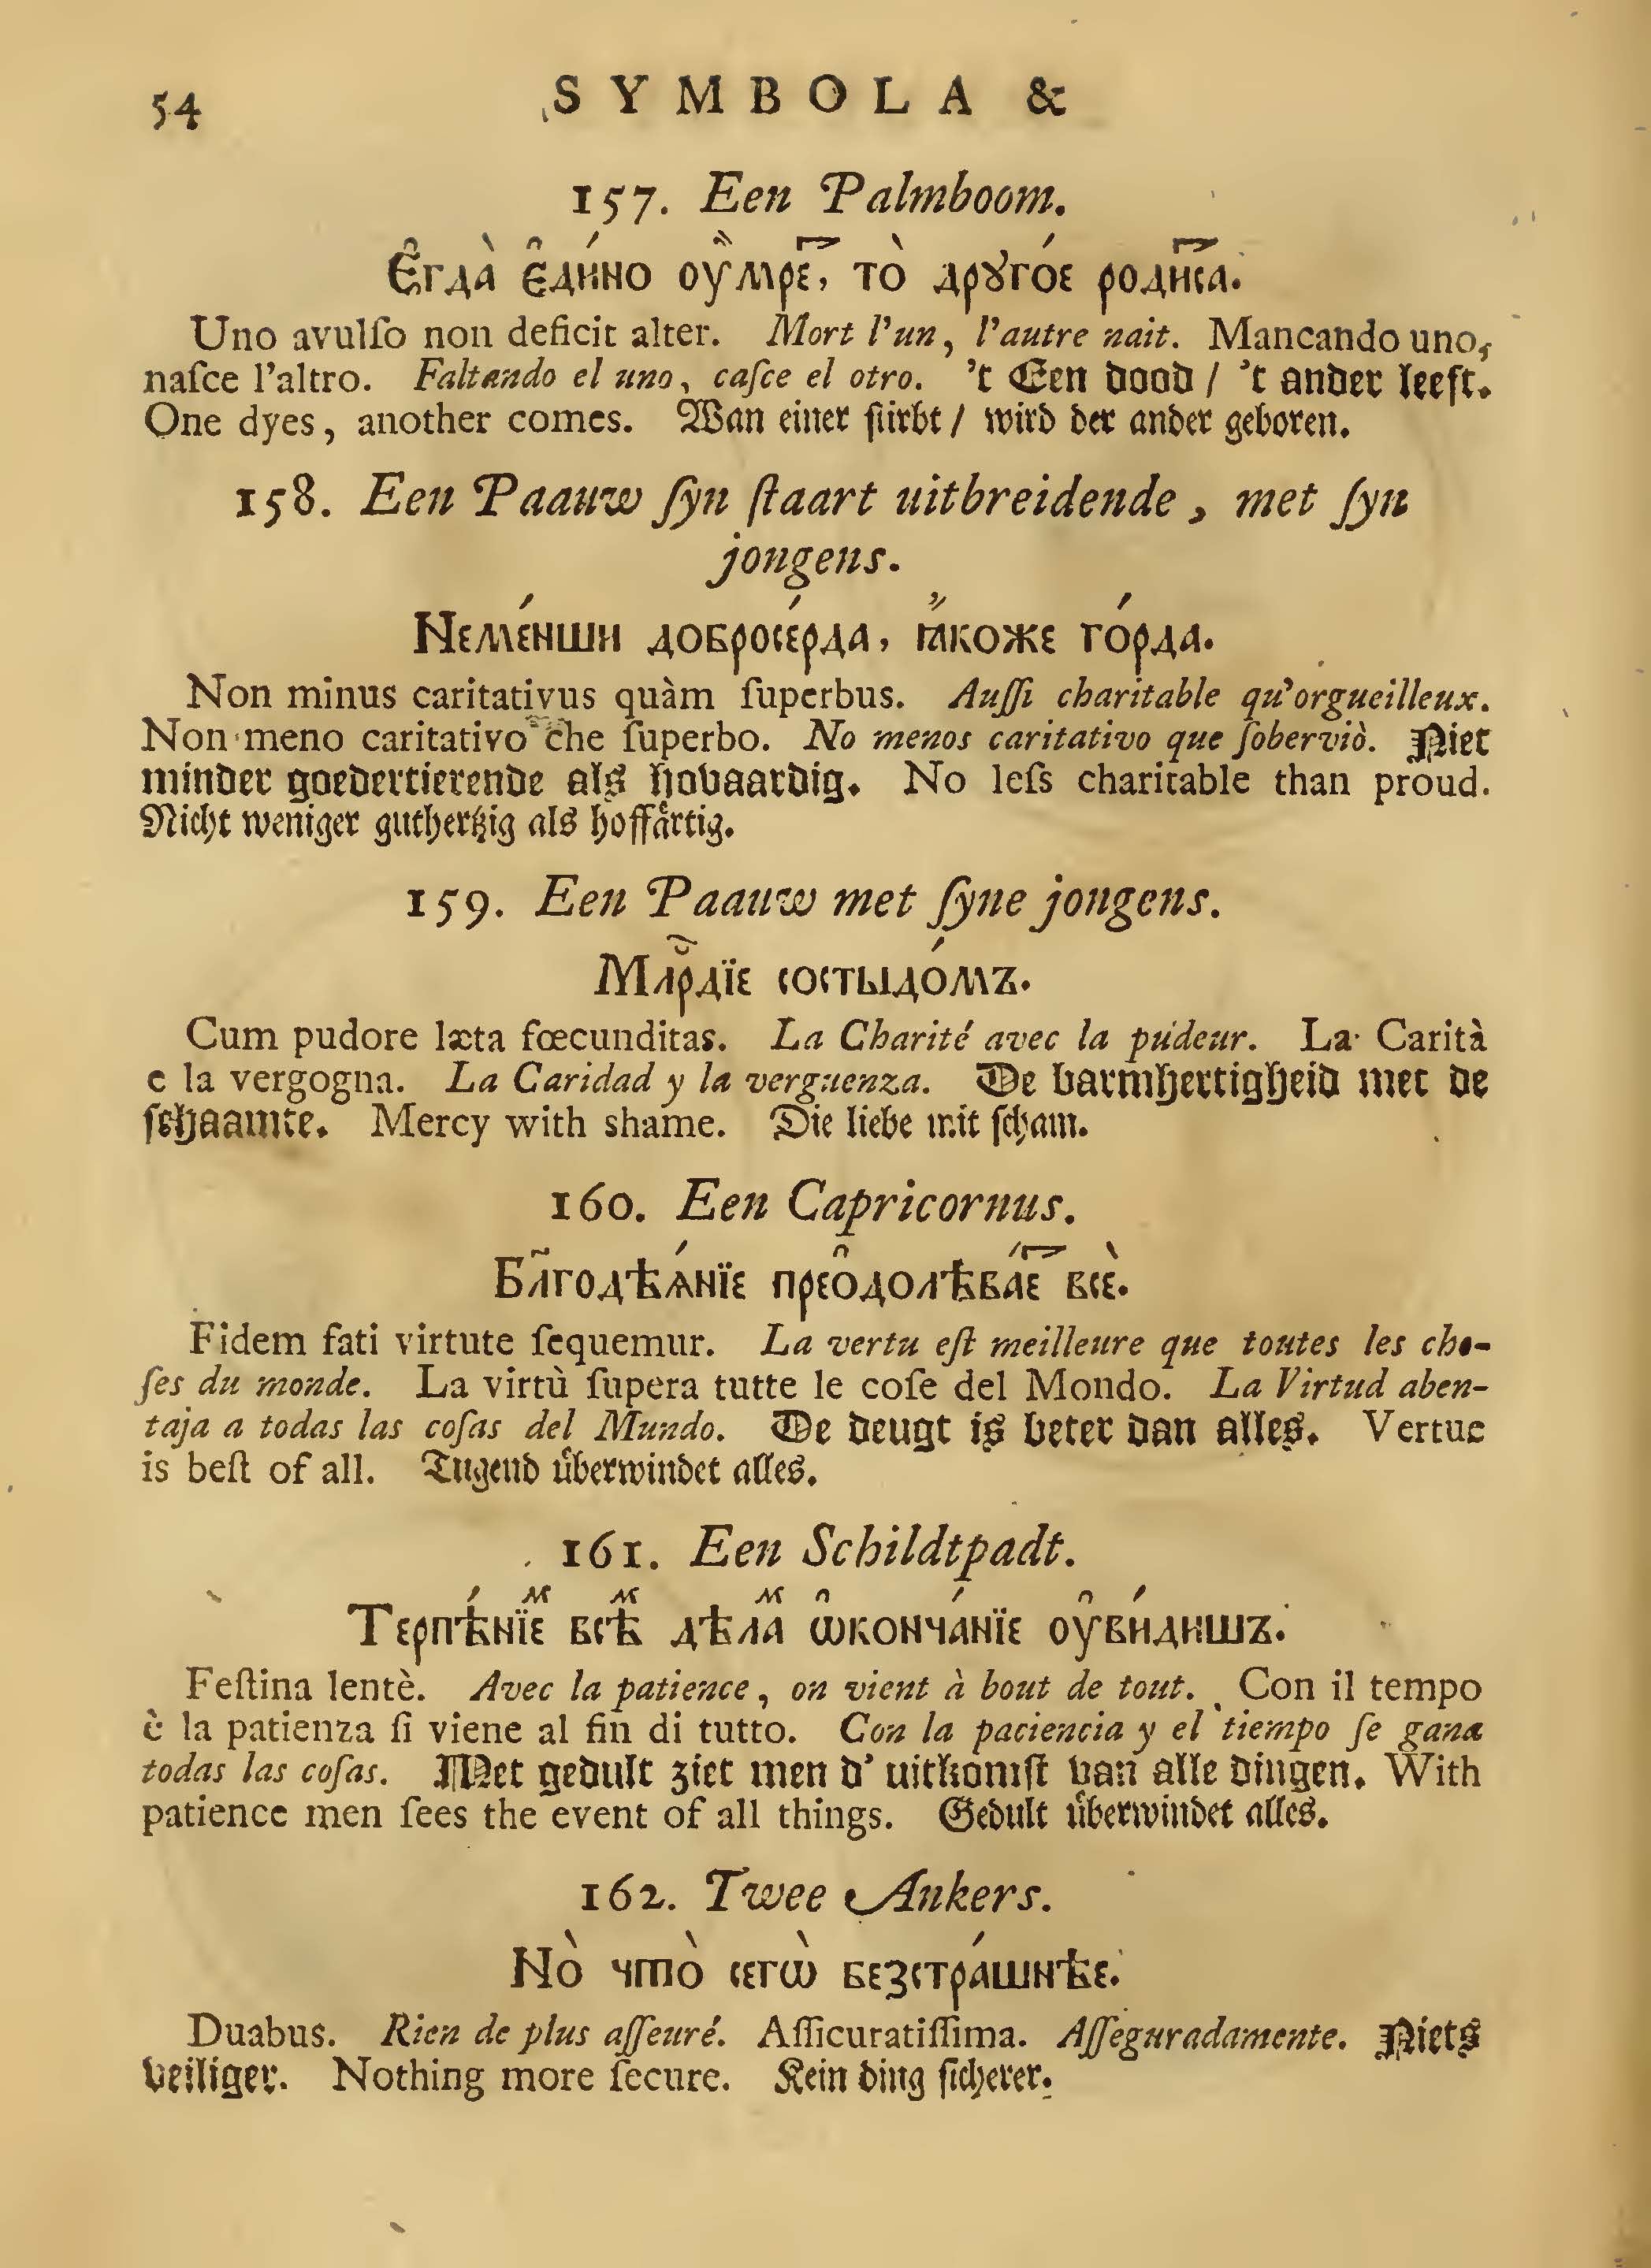 54 SYMBOLA &
157. Een Palmboom.
Є҆гда̀ є҆ди́но ᲂу҆̀мре́т, то̀ дрꙋго́е роди́тсѧ.
Uno avulſo non deficit alter. Mort l'un, l'autre nait. Mancando uno,
naſce l'altro. Faltando el uno, caſce el otro. 't Een dood / 't ander leeft.
One dyes, another comes. Wan einer ſtirbt / wird der ander geboren.
158. Een Paauw ſyn ſtaart uitbreidende, met ſyn
jongens.
Неме́нши добросе́рда, ꙗ҆́коже го́рда.
Non minus caritativus quàm ſuperbus. Auſſi charitable qu'orgueilleux.
Non meno caritativo che ſuperbo. No menos caritativo que ſoberviò. Niet
minder goedertierende als hovaardig. No leſs charitable than proud.
Nicht weniger guthertzig als hoffaͤrtig.
159. Een Paauw met ſyne jongens.
Млⷭ҇рдїе состыдо́мъ.
Cum pudore læta fœcunditas. La Charité avec la pudeur. La Carità
e la vergogna. La Caridad y la verguenza. De barmhertigheid met de
ſchaamte. Mercy with shame. Die liebe mit ſcham.
160. Een Capricornus.
Бл҃годѣѧ́нїе прео҆долѣва́етⷮ всѐ.
Fidem fati virtute ſequemur. La vertu eſt meilleure que toutes les cho-
ſes du monde. La virtù ſupera tutte le coſe del Mondo. La Virtud aben-
taja a todas las coſas del Mundo. De deugt is beter dan alles. Vertue
is beſt of all. Tugend uͤberwindet alles.
161. Een Schildtpadt.
Терпѣ́нїеⷨ всѣⷨ дѣлаⷨ ѡ҆конча́нїе ᲂу҆ви́дишъ.
Feſtina lentè. Avec la patience, on vient à bout de tout. Con il tempo
è la patienza ſi viene al fin di tutto. Con la paciencia y el tiempo ſe gana
todas las coſas. Met gedult ziet men d' uitkomſt van alle dingen. With
patience men ſees the event of all things. Gedult uͤberwindet alles.
162. Twee Ankers.
Но̀ что̀ сегѡ̀ безстра́шнѣе.
Duabus. Rien de plus aſſeuré. Aſſicuratiſſima. Aſſeguradamente. Niets
veiliger. Nothing more ſecure. Kein ding ſicherer.